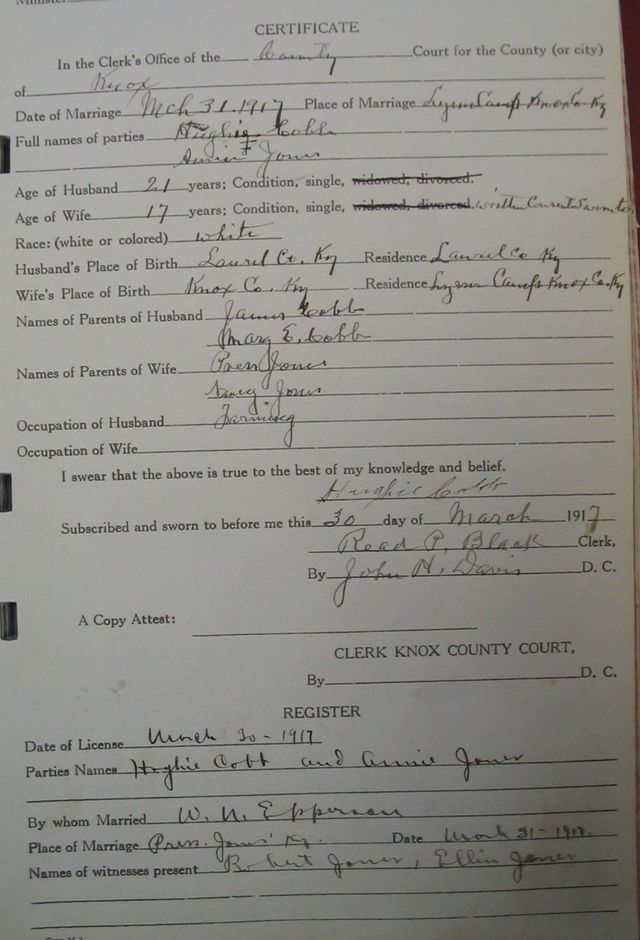 CERTIFICATE
In the Clerk's Office of the County Court for the County (or city)
of Knox
Date of Marriage Mch 31. 1917 Place of Marriage Lynn Camp Knox Co. Ky
Full names of parties Hughie Cobb
& Annie Jones
Age of Husband 21 years; Condition, single, widowed, divorced.
Age of Wife 17 years; Condition, single, widowed, divorced. written Consent Sworn to
Race: (white or colored) white
Husband's Place of Birth Laurel Co. Ky Residence Laurel Co Ky
Wife's Place of Birth Knox Co. Ky Residence Lynn Camp Knox Co. Ky
Names of Parents of Husband James Cobb
Marg E. Cobb
Names of Parents of Wife Press Jones
Jones
Occupation of Husband Farming
Occupation of Wife
I swear that the above is true to the best of my knowledge and belief.
Hughie Cobb
Subscribed and sworn to before me this 30 day of March 1917
Read P. Black Clerk,
By John H. Davis D. C.
A Copy Attest:
CLERK KNOX COUNTY COURT,
By D. C.
REGISTER
Date of License March 30 - 1917
Parties Names Hughie Cobb and Annie Jones
By whom Married W. N. Epperson
Place of Marriage Press. Jones' Ky. Date March 31 - 1917.
Names of witnesses present Robert Jones, Ellin Jones